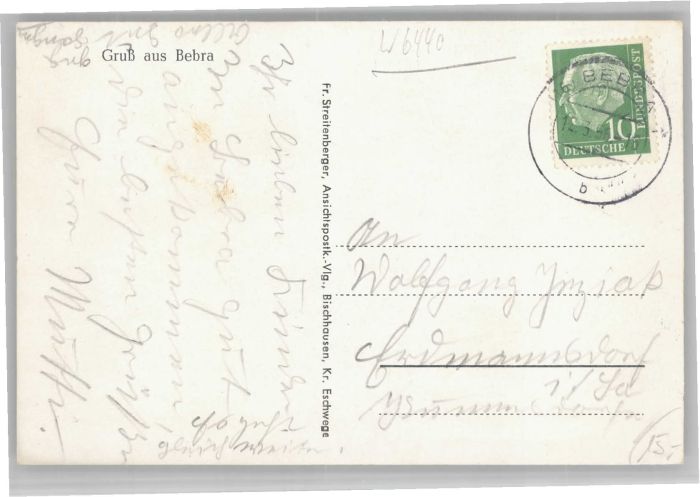 Gruß aus Bebra
W6440
BEBRA
BUNDESPOST
10
DEUTSCHE
b
Fr. Streitenberger, Ansichtspostk.-Vlg., Bischhausen, Kr. Eschwege
Ihr lieben Kinder
In Bebra gut
angekommen
die besten Grüße
Eure Mutti.
An
Wolfgang
Erdmannsdorf
i/Sa
15,-